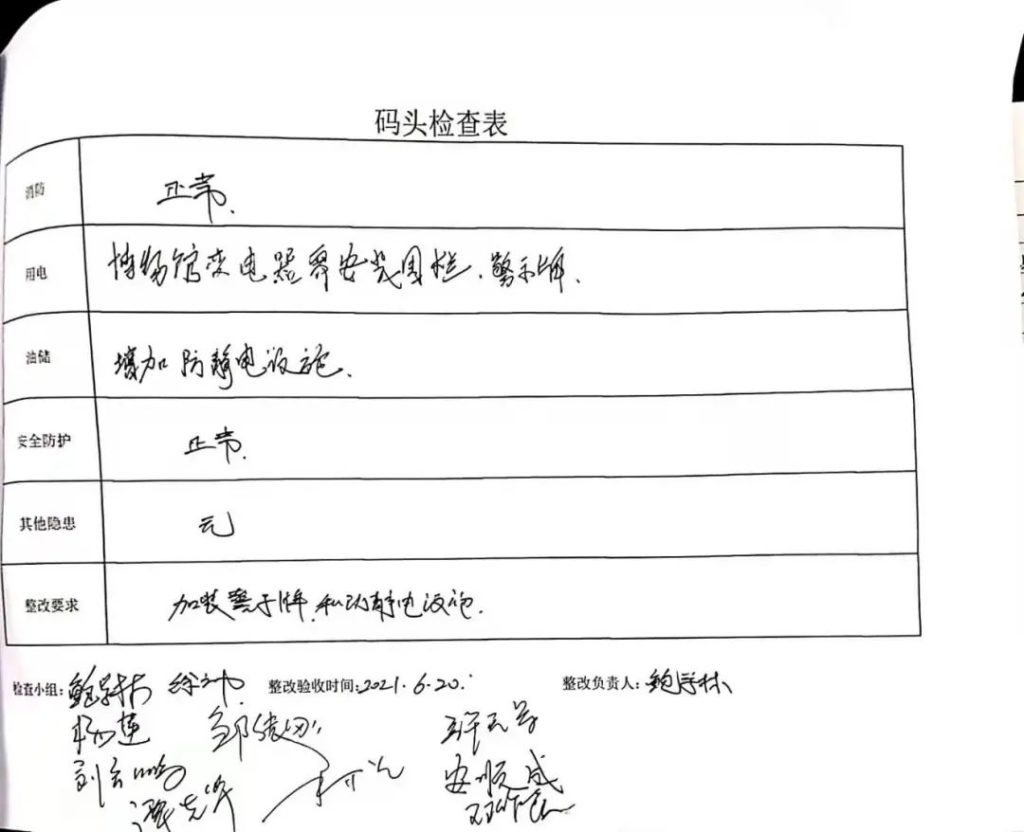 码头检查表
消防 正常.
用电 博物馆变电器需安装围栏、警示牌.
油储 增加防静电设施.
安全防护 正常.
其他隐患 无
整改要求 加装警示牌和防静电设施.
检查小组: 整改验收时间:2021.6.20. 整改负责人: 鲍学林
杨莲
安顺成